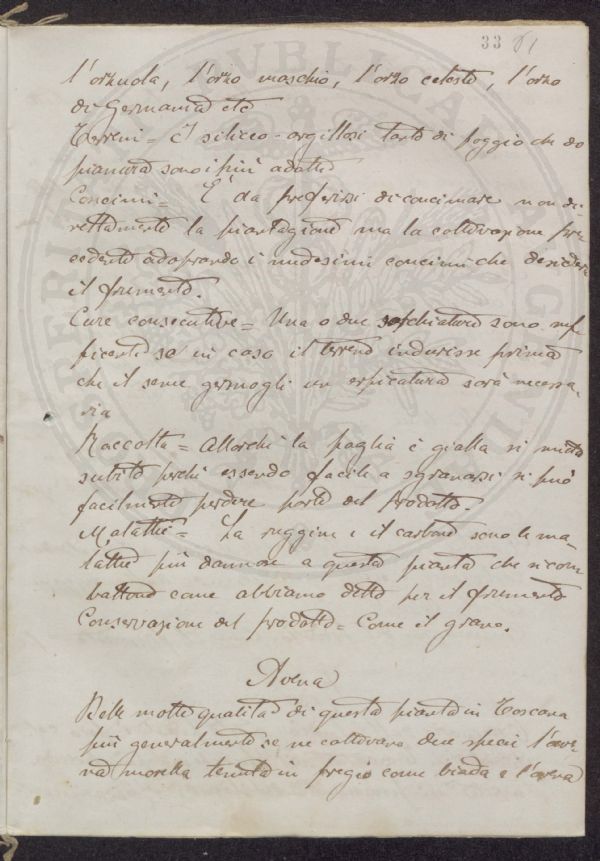 33 61
l'orzuola, l'orzo maschio, l'orzo celeste, l'orzo
di Germania etc
Terreni = I siliceo-argillosi tanto di poggio che di
pianura sono i più adatti
Concimi = È da preferirsi di concimare non di-
rettamente la piantagione ma la coltivazione pre-
cedente adoprando i medesimi concimi che desidera
il frumento.
Cure consecutive = Una o due sarchiature sono suf-
ficenti se in caso il terreno indurisse prima
che il seme germogli un erpicatura sarà necessa-
ria
Raccolta = Allorchè la paglia è gialla si miete
subito perchè essendo facile a sgranarsi si può
facilmente perdere parte del prodotto.
Malattie = La ruggine e il carbone sono le ma-
lattie più dannose a questa pianta che si com-
battono come abbiamo detto per il frumento
Conservazione del prodotto = Come il grano.
Avena
Delle molte qualità di questa pianta in Toscana
più generalmente se ne coltivano due specie l'ave-
na morella tenuta in pregio come biada e l'avena